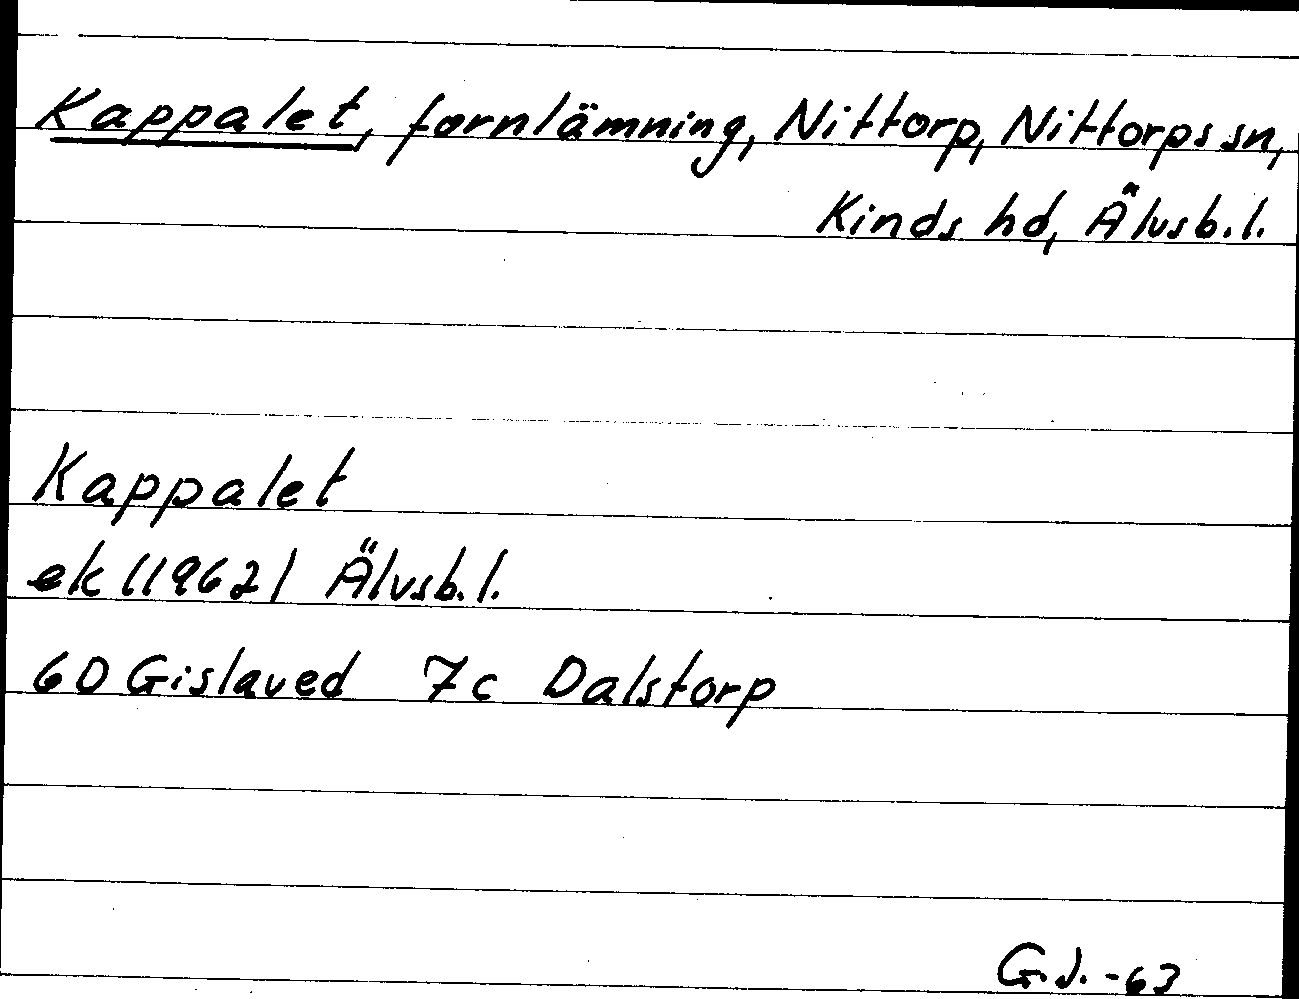 Kappalet, fornlämning, Nittorp, Nittorps sn,
Kinds hd, Älvsb. l.
Kappalet
ek 119621 Älvsb. l.
6D Gislaved 7c Dalstorp
G.J. -63